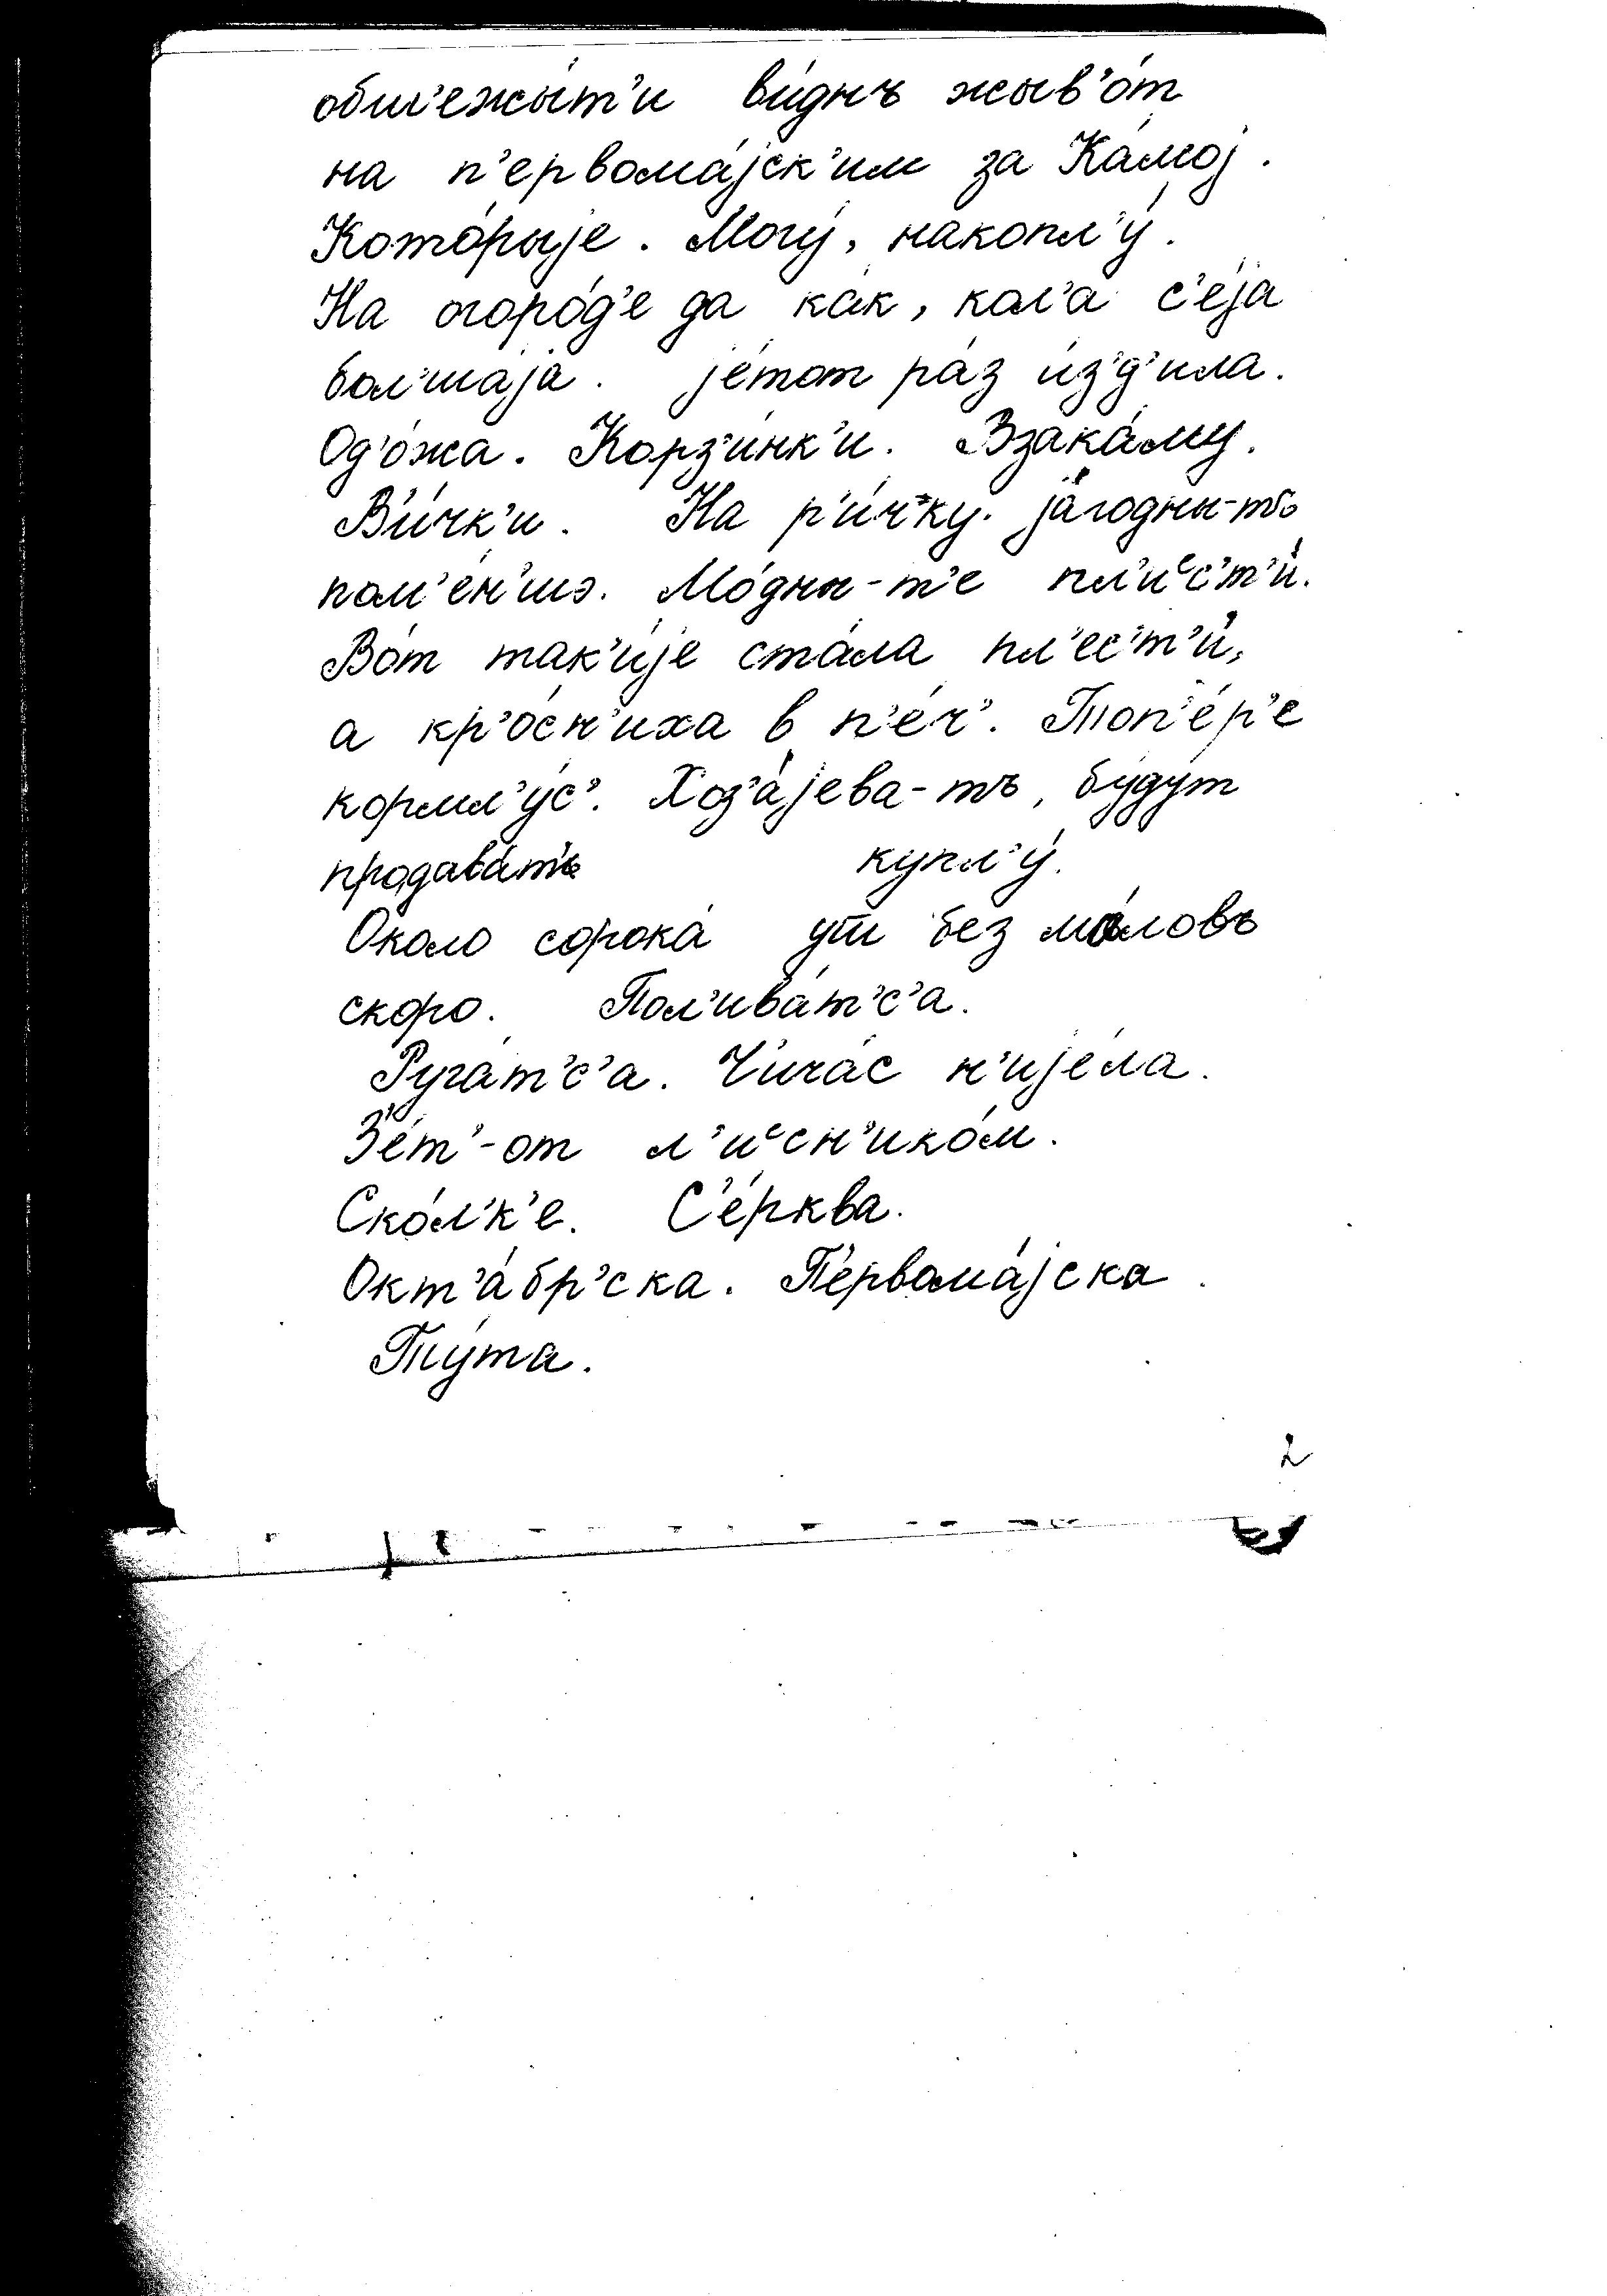 обш'ежы́т'и ви́днъ жыв'о́т
на п'ервома́јск'им за Ка́мој.
Кото́рыје. Могу́, накопл'у́.
На огоро́д'е да ка́к, кол'а́ с'е́ја
бол'ша́ја. је́тот ра́з и́з'д'ила.
Од'о́жа. Корз'и́нк'и. Взака́му.
В'и́чк'и. На р'и́ч'ку. ја́годны-то
пом'е́н'шэ. Мо́дны-т'е пл'иᵉс'т'и́.
Во́т так'и́је ста́ла пл'ес'т'и́,
а кр'о́сн'иха в п'е́ч'. Топ'е́р'е
кормл'у́с'. Хоз'а́јева-тъ, бу́дут
продава́т' купл'у́.
Около сорока́ ут без ма́ловъ
скоро. Пол'ива́т'с'а.
Руга́т'с'а. Чича́с н'ије́ла.
З'е́т'-от л'иᵉсн'ико́м.
Ско́л'к'е. С'е́рква.
Окт'а́бр'ска. П'ервома́јска.
Ту́та.
2